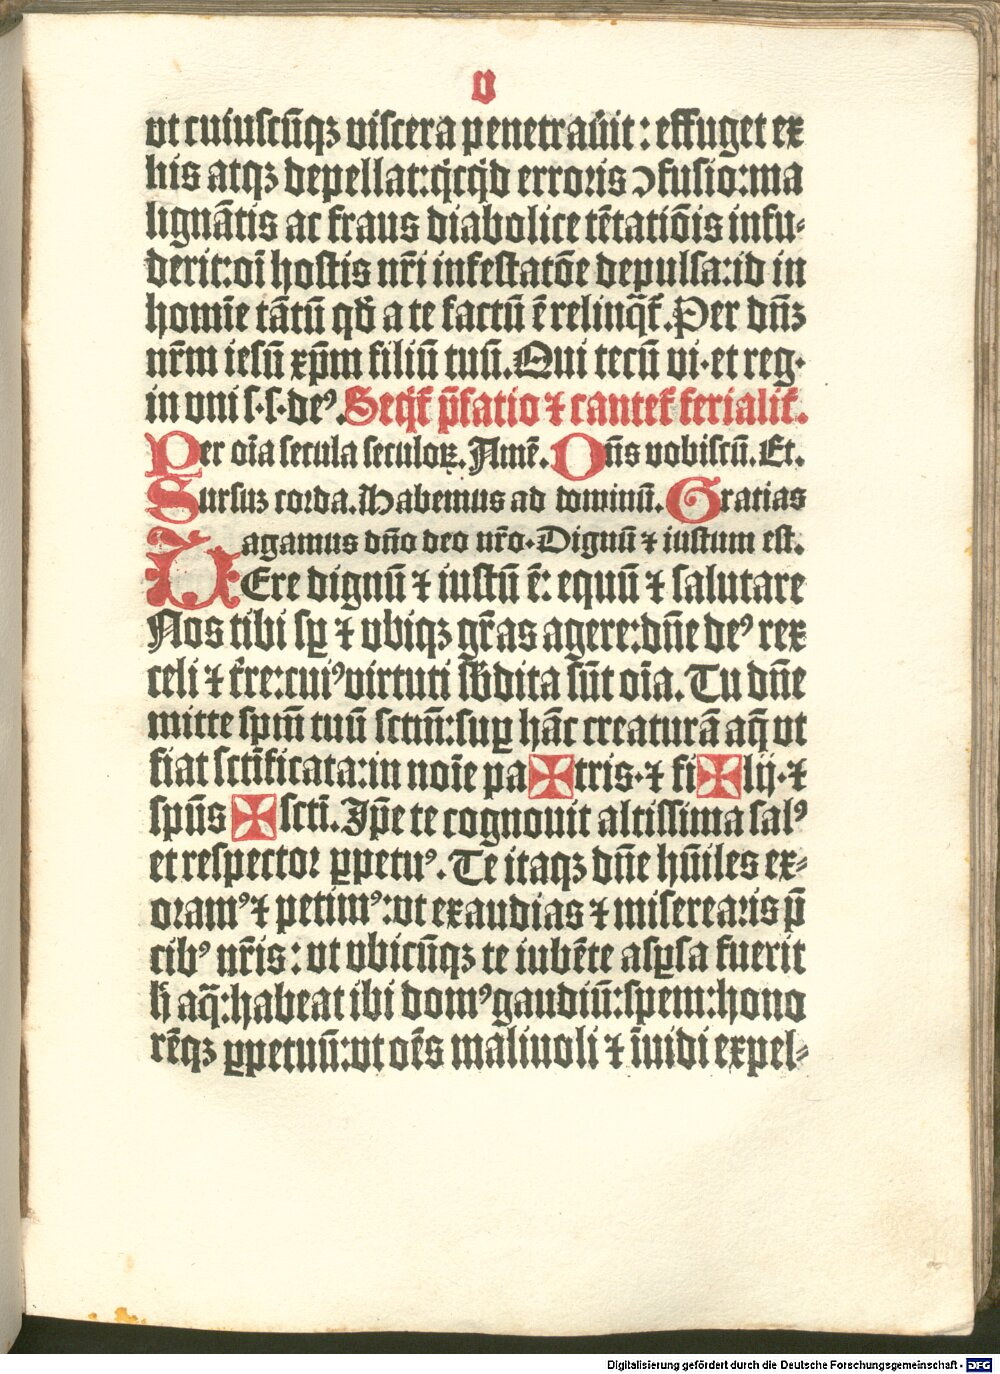 v
vt cuiuscūqꝫ viscera penetrauit: effuget ex
his atqꝫ depellat: qͥcqͥd erroris ↄfusio: ma
lignātis ac fraus diabolice tētatiōis infu⸗
derit: oī hostis nr̄i infestatōe depulsa: id in
homīe tātū qđ a te factū ē relinqͣt̄. Per dn̄ꝫ
nr̄m iesū xp̄m filiū tuū. Qui tecū vi· et reg·
in vni s· s· deꝰ. Seqͥt̄ p̄fatio ⁊ cantet̄ ferialit̄.
Per oīa secula seculoꝝ. Amē. Dn̄s vobiscū. Et.
Sursuꝫ corda. Habemus ad dominū. Gratias
agamus dn̄o deo nr̄o. Dignū ⁊ iustum est.
VEre dignū ⁊ iustū ē: equū ⁊ salutare
Nos tibi sꝑ ⁊ vbiqꝫ gr̄as agere: dn̄e deꝰ rex
celi ⁊ tr̄e: cuiꝰ virtuti sb̄dita sūt oīa. Tu dn̄e
mitte spm̄ tuū sctm̄: suꝑ hāc creaturā aq̄ vt
fiat sctīficata: in noīe pa✠tris· ⁊ fi✠lij· ⁊
spūs ✠ sctī. Ip̄e te cognouit altissima salꝰ
et respector ꝑpetuꝰ. Te itaqꝫ dn̄e hūiles ex⸗
oramꝰ ⁊ petimꝰ: vt exaudias ⁊ miserearis p̄
cibꝰ nr̄is: vt vbicūqꝫ te iubēte asꝑsa fuerit
h̄ aq̄: habeat ibi domꝰ gaudiū: spem: hono
rēqꝫ ꝑpetuū: vt oēs maliuoli ⁊ īuidi expel⸗
Digitalisierung gefördert durch die Deutsche Forschungsgemeinschaft - DFG